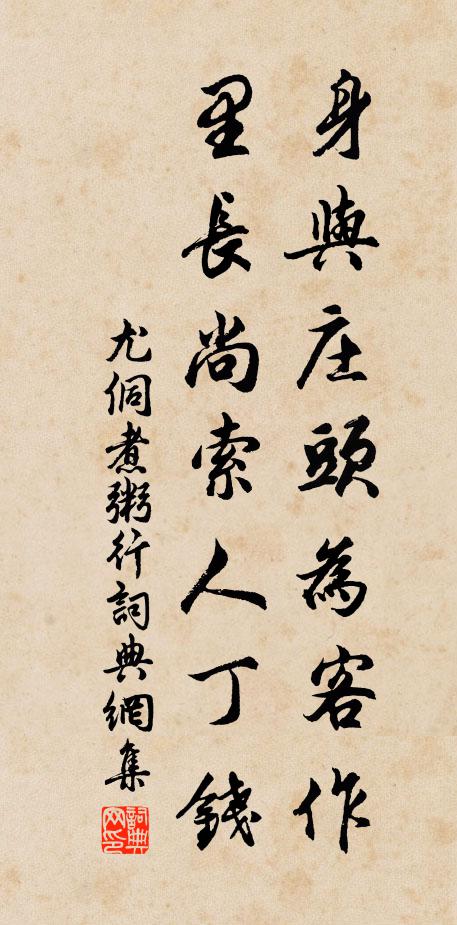 身與庄頭為客作
里長尚索人丁錢
尤侗煮粥行詞典網集
詞典网印